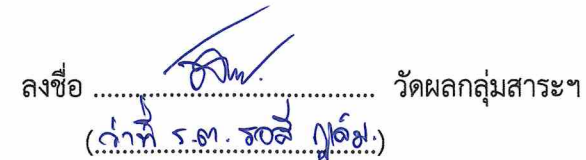 ลงชื่อ ........................................ วัดผลกลุ่มสาระฯ
(ว่าที่ ร.ต. รอสี)